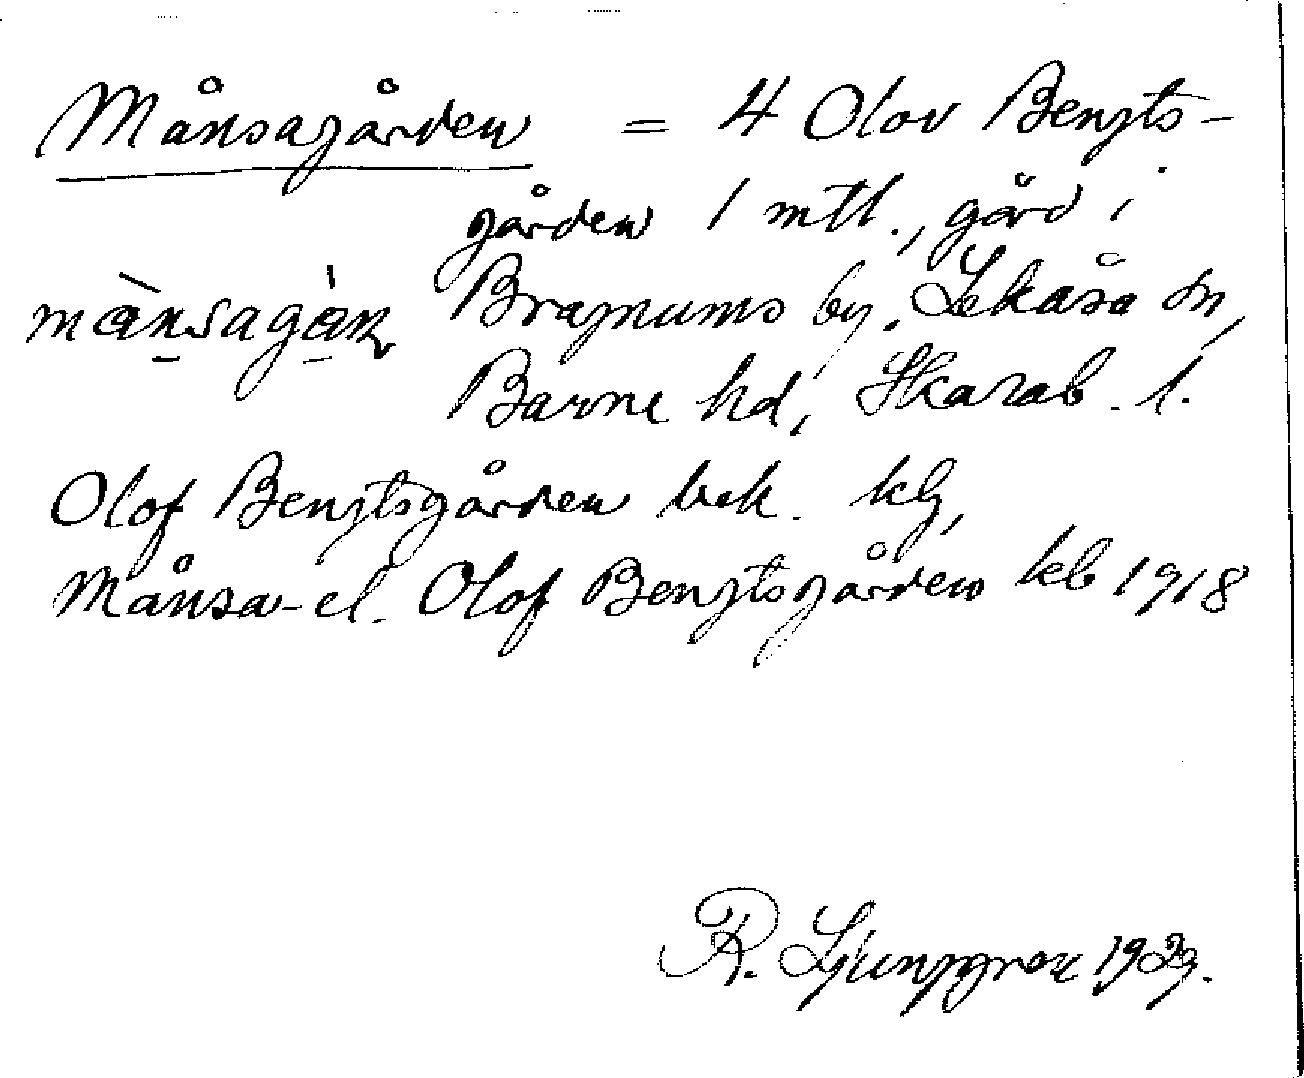 Månsagården = 4 Olov Bengts-
gården 1 mtl., gård i
mànsagȧ́ṇ Bragnums by, Lekåsa sn,
Barne hd, Skarab. l.
Olof Bengtsgården bek. klg,
Månsa- el. Olof Bengtsgården kb 1918
R. Ljunggren 1929.